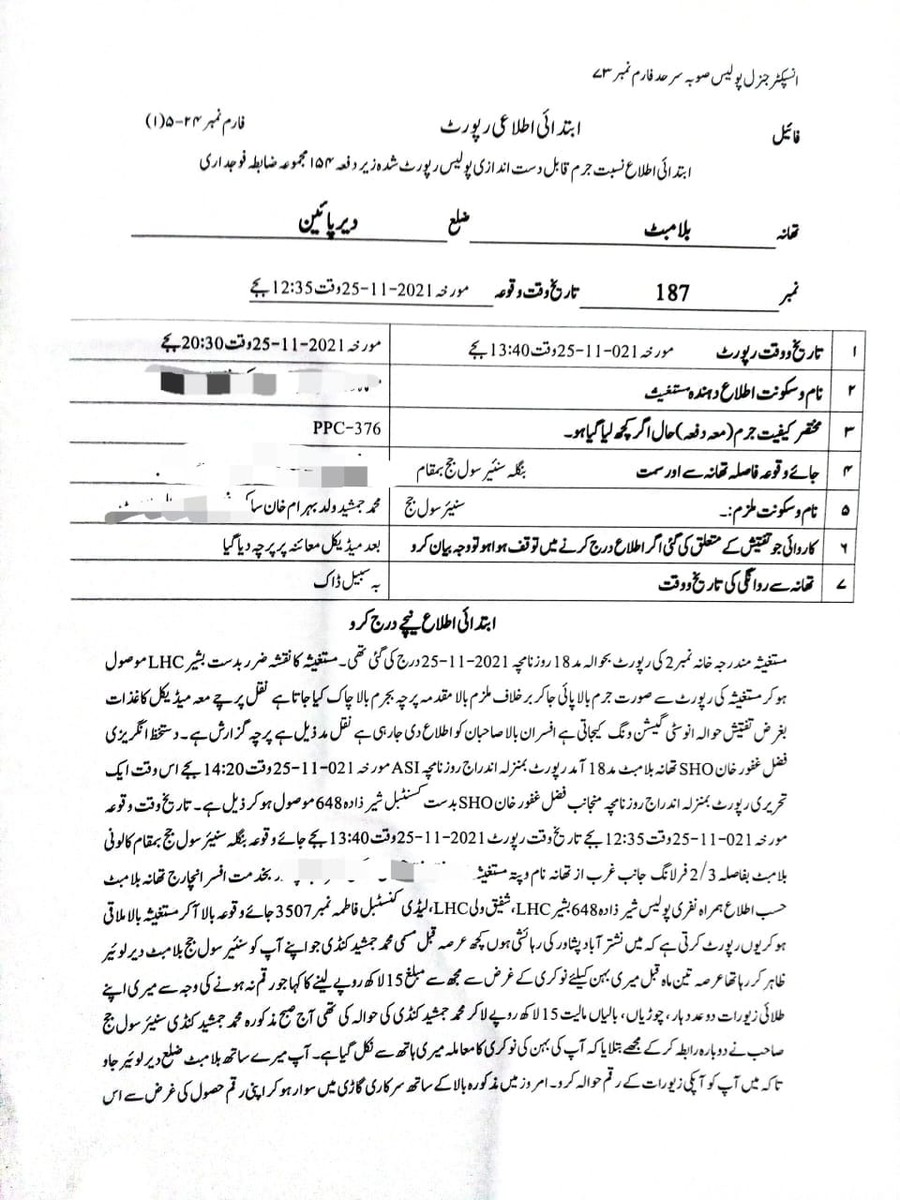 انسپکٹر جنرل پولیس صوبہ سرحد فارم نمبر ۷۳
فائیل ابتدائی اطلاعی رپورٹ فارم نمبر ۲۴-۵(۱)
ابتدائی اطلاع نسبت جرم قابل دست اندازی پولیس رپورٹ شدہ زیر دفعہ ۱۵۴ مجموعہ ضابطہ فوجداری
تھانہ بلامبٹ ضلع دیر پائین
نمبر 187 تاریخ وقت وقوعہ مورخہ 25-11-2021 وقت 12:35 بجے
۱ تاریخ ووقت رپورٹ مورخہ 25-11-021 وقت 13:40 بجے مورخہ 25-11-2021 وقت 20:30 بجے
۲ نام وسکونت اطلاع دہندہ مستغیث
۳ مختصر کیفیت جرم (معہ دفعہ) حال اگر کچھ لیا گیا ہو۔ PPC-376
۴ جائے وقوعہ فاصلہ تھانہ سے اور سمت بنگلہ سنئیر سول جج بمقام
۵ نام وسکونت ملزم:۔ سنئیر سول جج محمد جمشید ولد بہرام خان سا
۶ کاروائی جو تفتیش کے متعلق کی گئی اگر اطلاع درج کرنے میں توقف ہوا ہو تو وجہ بیان کرو بعد میڈیکل معائنہ پر پرچہ دیا گیا
۷ تھانہ سے روانگی کی تاریخ ووقت بہ سبیل ڈاک
ابتدائی اطلاع نیچے درج کرو
مستغیثہ مندرجہ خانہ نمبر 2 کی رپورٹ بحوالہ مد 18 روزنامچہ 25-11-2021 درج کی گئی تھی۔ مستغیثہ کا نقشہ ضرر بدست بشیر LHC موصول
ہو کر مستغیثہ کی رپورٹ سے صورت جرم بالا پائی جا کر بر خلاف ملزم بالا مقدمہ پرچہ بجرم بالا چاک کیا جاتا ہے نقل پرچے معہ میڈیکل کاغذات
بغرض تفتیش حوالہ انوسٹی گیشن ونگ کیجاتی ہے افسران بالا صاحبان کو اطلاع دی جارہی ہے نقل مد ذیل ہے پرچہ گزارش ہے۔ دستخط انگریزی
فضل غفور خان SHO تھانہ بلامبٹ مد 18 آمد رپورٹ بمنزلہ اندراج روزنامچہ ASI مورخہ 25-11-021 وقت 14:20 بجے اس وقت ایک
تحریری رپورٹ بمنزلہ اندراج روزنامچہ منجانب فضل غفور خان SHO بدست کنسٹبل شیر ذادہ 648 موصول ہو کر ذیل ہے۔ تاریخ وقت وقوعہ
مورخہ 25-11-021 وقت 12:35 بجے تاریخ وقت رپورٹ 25-11-2021 وقت 13:40 بجے جائے وقوعہ بنگلہ سنئیر سول جج بمقام کالونی
بلامبٹ بفاصلہ 2/3 فرلانگ جانب غرب از تھانہ نام وپتہ مستغیثہ بخدمت افسر انچارج تھانہ بلامبٹ
حسب اطلاع ہمراہ نفری پولیس شیر ذادہ 648 بشیر LHC، شفیق ولی LHC، لیڈی کنسٹبل فاطمہ نمبر 3507 جائے وقوعہ بالا آکر مستغیثہ بالا ملاقی
ہو کر یوں رپورٹ کرتی ہے کہ میں نشتر آباد پشاور کی رہائشی ہوں کچھ عرصہ قبل مسمی محمد جمشید کنڈی جو اپنے آپ کو سنئیر سول جج بلامبٹ دیر لوئیر
ظاہر کر رہا تھا عرصہ تین ماہ قبل میری بہن کیلئے نوکری کے غرض سے مجھ سے مبلغ 15 لاکھ روپے لینے کا کہا جو رقم نہ ہونے کی وجہ سے میری اپنے
طلائی زیورات دو عدد ہار، چوڑیاں، بالیاں مالیت 15 لاکھ روپے لا کر محمد جمشید کنڈی کی حوالہ کی تھی آج صبح مذکورہ محمد جمشید کنڈی سنئیر سول جج
صاحب نے دوبارہ رابطہ کر کے مجھے بتلایا کہ آپ کی بہن کی نوکری کا معاملہ میری ہاتھ سے نکل گیا ہے۔ آپ میرے ساتھ بلامبٹ ضلع دیر لوئیر جاو
تاکہ میں آپ کو آپکی زیورات کے رقم حوالہ کرو۔ امروز میں مذکورہ بالا کے ساتھ سرکاری گاڑی میں سوار ہو کر اپنی رقم حصول کی غرض سے اس